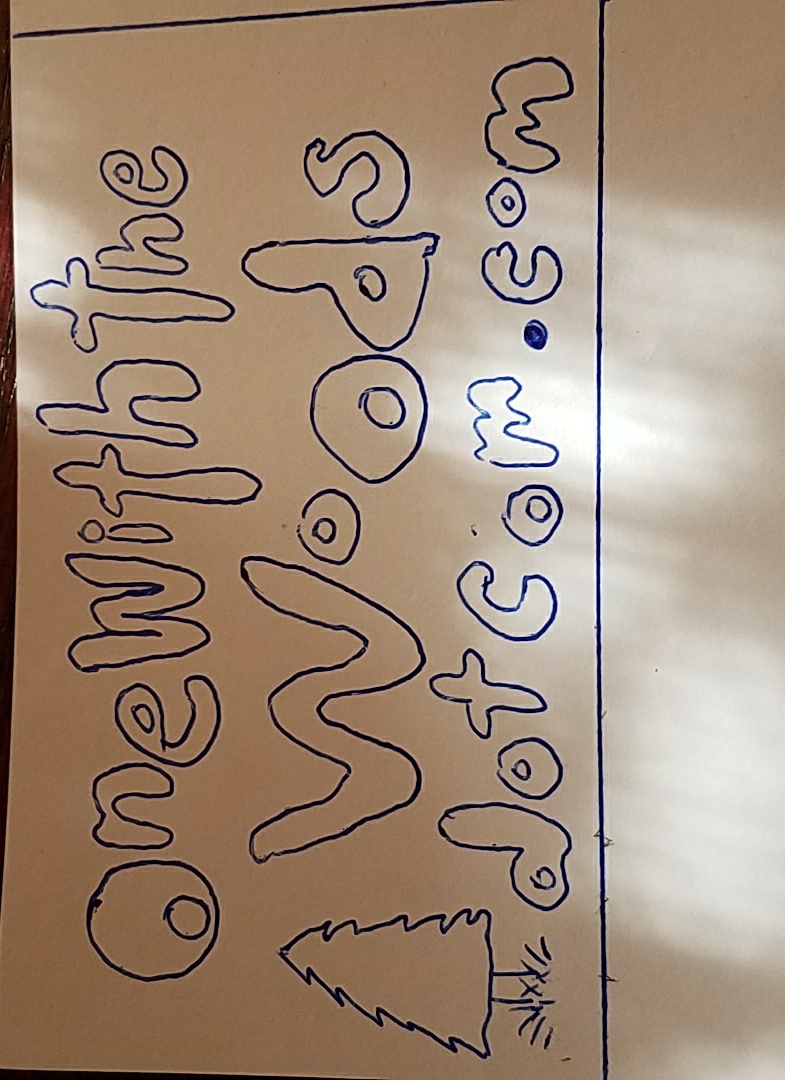 OneWithThe
Woods
dotCom.com